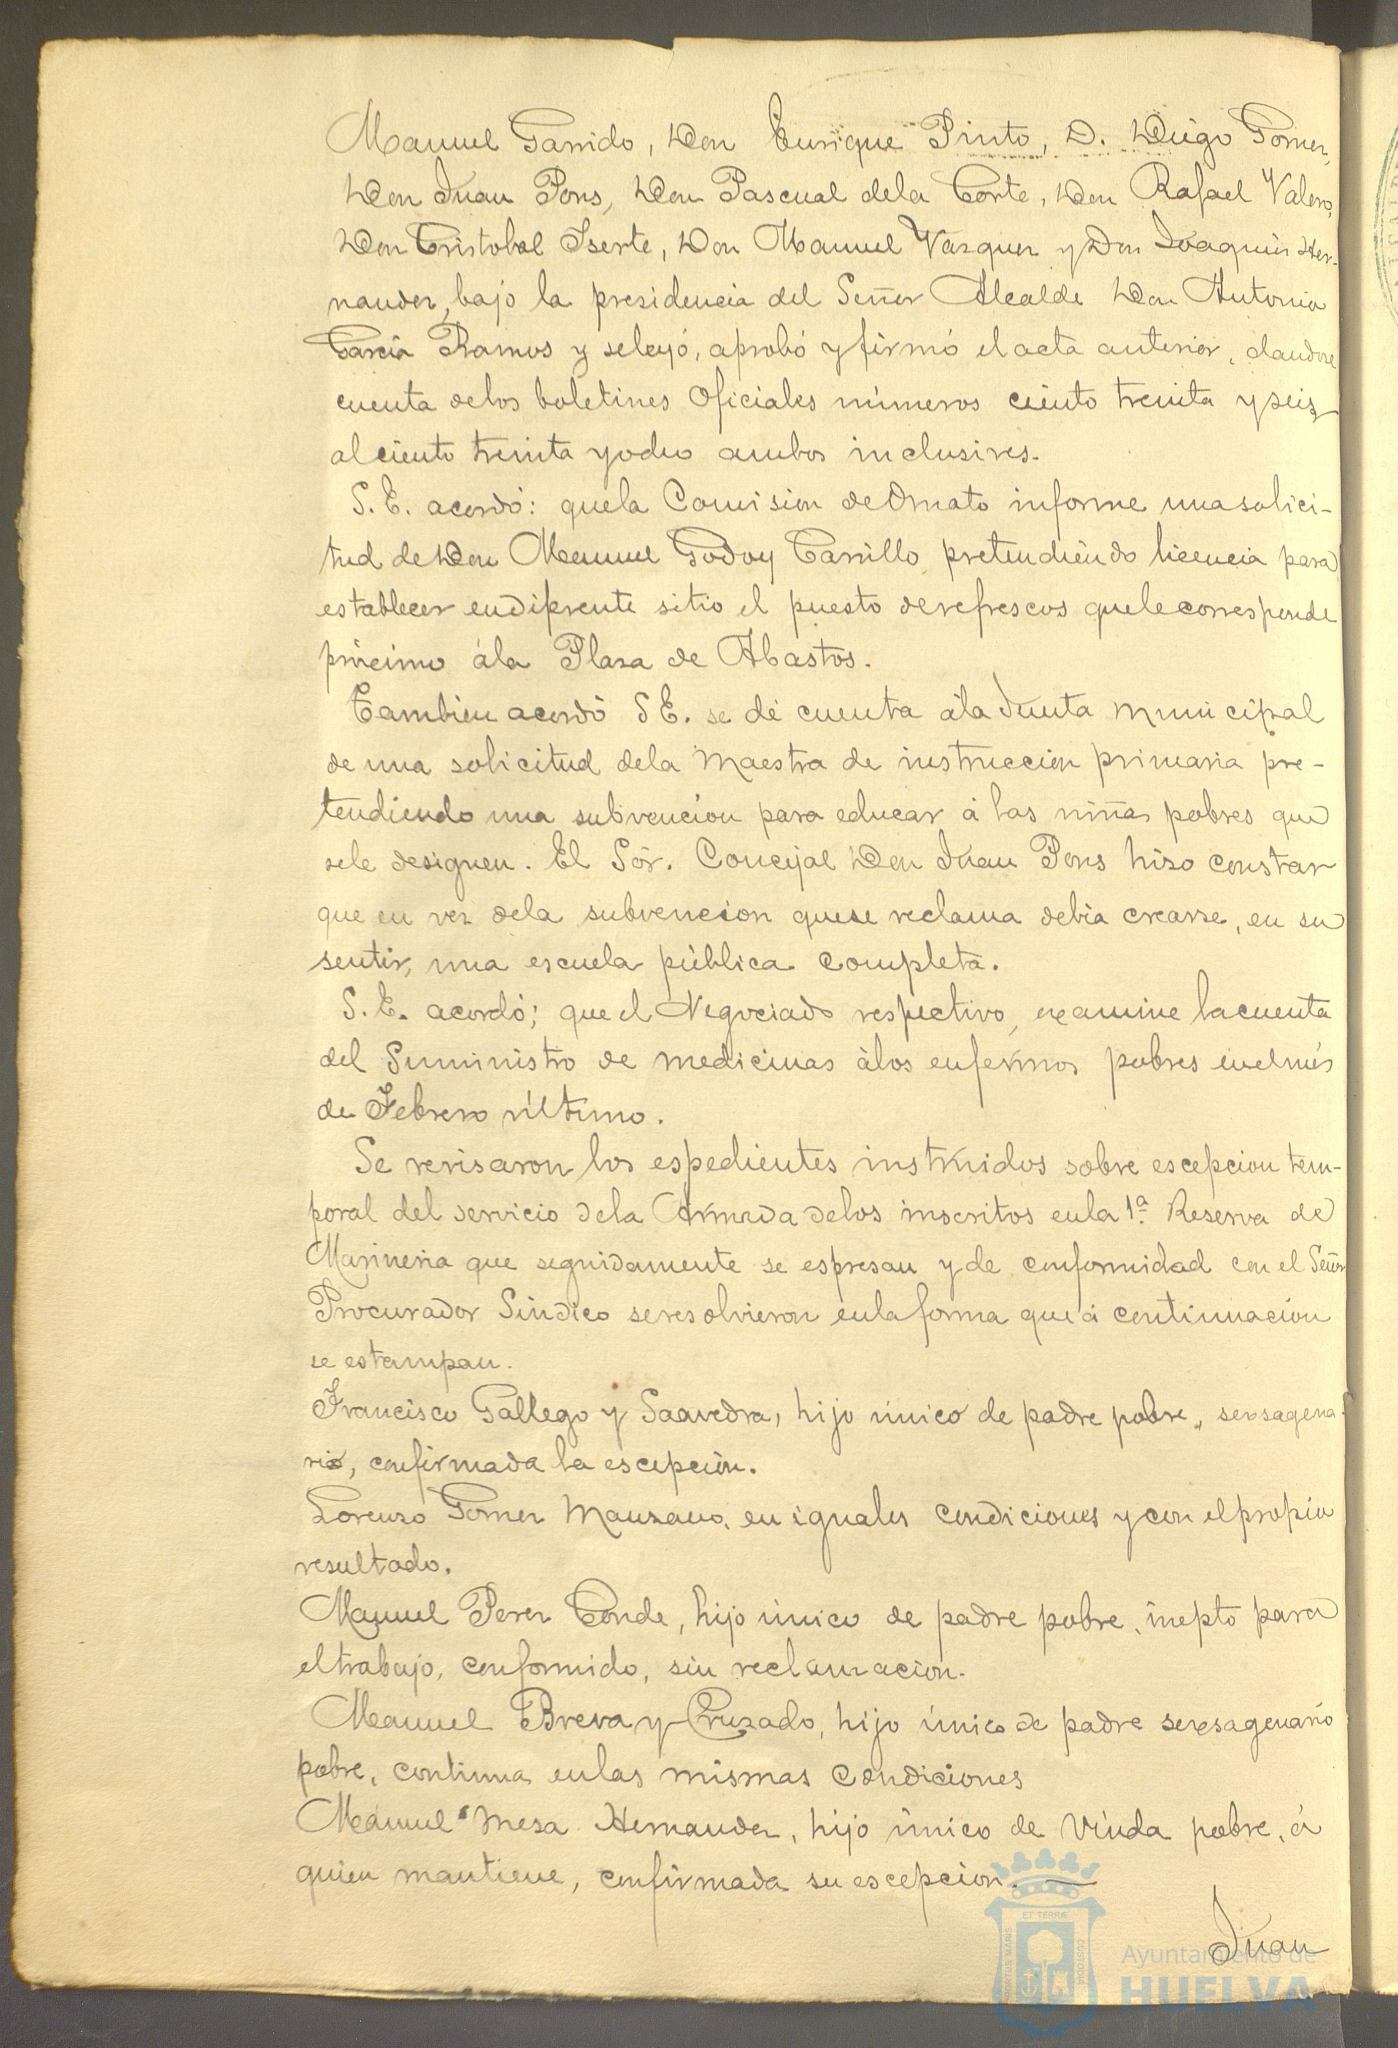 Manuel Garrido, Don Enrique Pinto, D. Diego Gomez,
Don Juan Pons, Don Pascual dela Corte, Don Rafael Valero,
Don Cristobal Iserte, Don Manuel Vazquez y Don Joaquin Her-
nandez, bajo la presidencia del Señor Alcalde Don Antonio
Garcia Ramos y seleyó, aprobó y firmó el acta anterior, dandose
cuenta delos boletines oficiales números ciento treinta y seis
al ciento treinta y ocho ambos inclusives.
S. E. acordó: quela Comision de Ornato informe una solici-
tud de Don Manuel Godoy Carrillo, pretendiendo licencia para
establecer endiferente sitio el puesto derefrescos quelecorresponde
próximo ála Plaza de Abastos.
Tambien acordó S E. se dé cuenta ála Junta municipal
de una solicitud dela Maestra de instruccion primaria pre-
tendiendo una subvencion para educar á las niñas pobres que
sele designen. El Sór. Concejal Don Juan Pons hizo constar
que en vez dela subvencion quese reclama debia crearse, en su
sentir, una escuela pública completa.
S. E. acordó; que el Negociado respectivo, examine la cuenta
del Suministro de medicinas álos enfermos pobres enelmes
de Febrero último.
Se revisaron los espedientes instruidos sobre escepcion tem-
poral del servicio dela Armada delos inscritos enla 1ª Reserva de
Marineria que seguidamente se espresan y de conformidad con el Señor
Procurador Síndico seresolvieron enlaforma que á continuacion
se estampan.
Francisco Gallego y Saavedra, hijo único de padre pobre, sexsagena-
rio, confirmada la escepción.
Lorenzo Gomez Manzano, en iguales condiciones y con el propio
resultado.
Manuel Perez Conde, hijo único de padre pobre, inepto para
eltrabajo, conformido, sin reclamacion.
Manuel Breva y Cruzado, hijo único de padre sexsagenario
pobre, continua enlas mismas condiciones
Manuel Mesa Hernandez, hijo único de viuda pobre, á
quien mantiene, confirmada su escepcion.
Juan
Ayuntamiento de
HUELVA